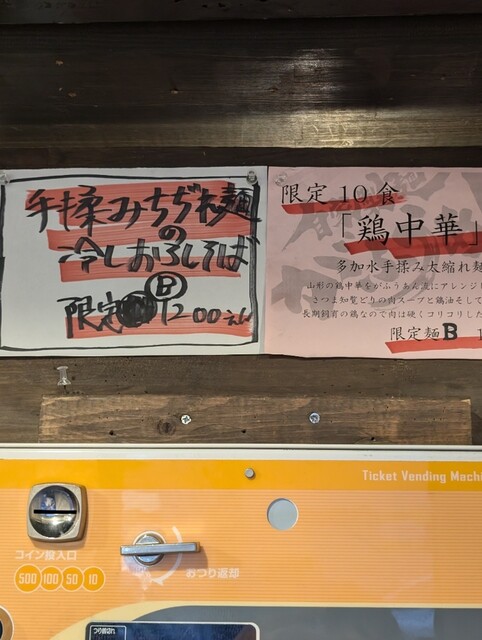 手揉みちぢれ麺
の
冷しおろしそば
B
限定 1200えん
限定10食
「鶏中華」
多加水手揉み太縮れ麺
山形の鶏中華をがふうあん流にアレンジ
さつま知覧どりの肉スープと鶏油そして
長期飼育の鶏なので肉は硬くコリコリした
限定麺B
Ticket Vending Machi
コイン投入口
500 100 50 10
おつり返却
つり銭切れ